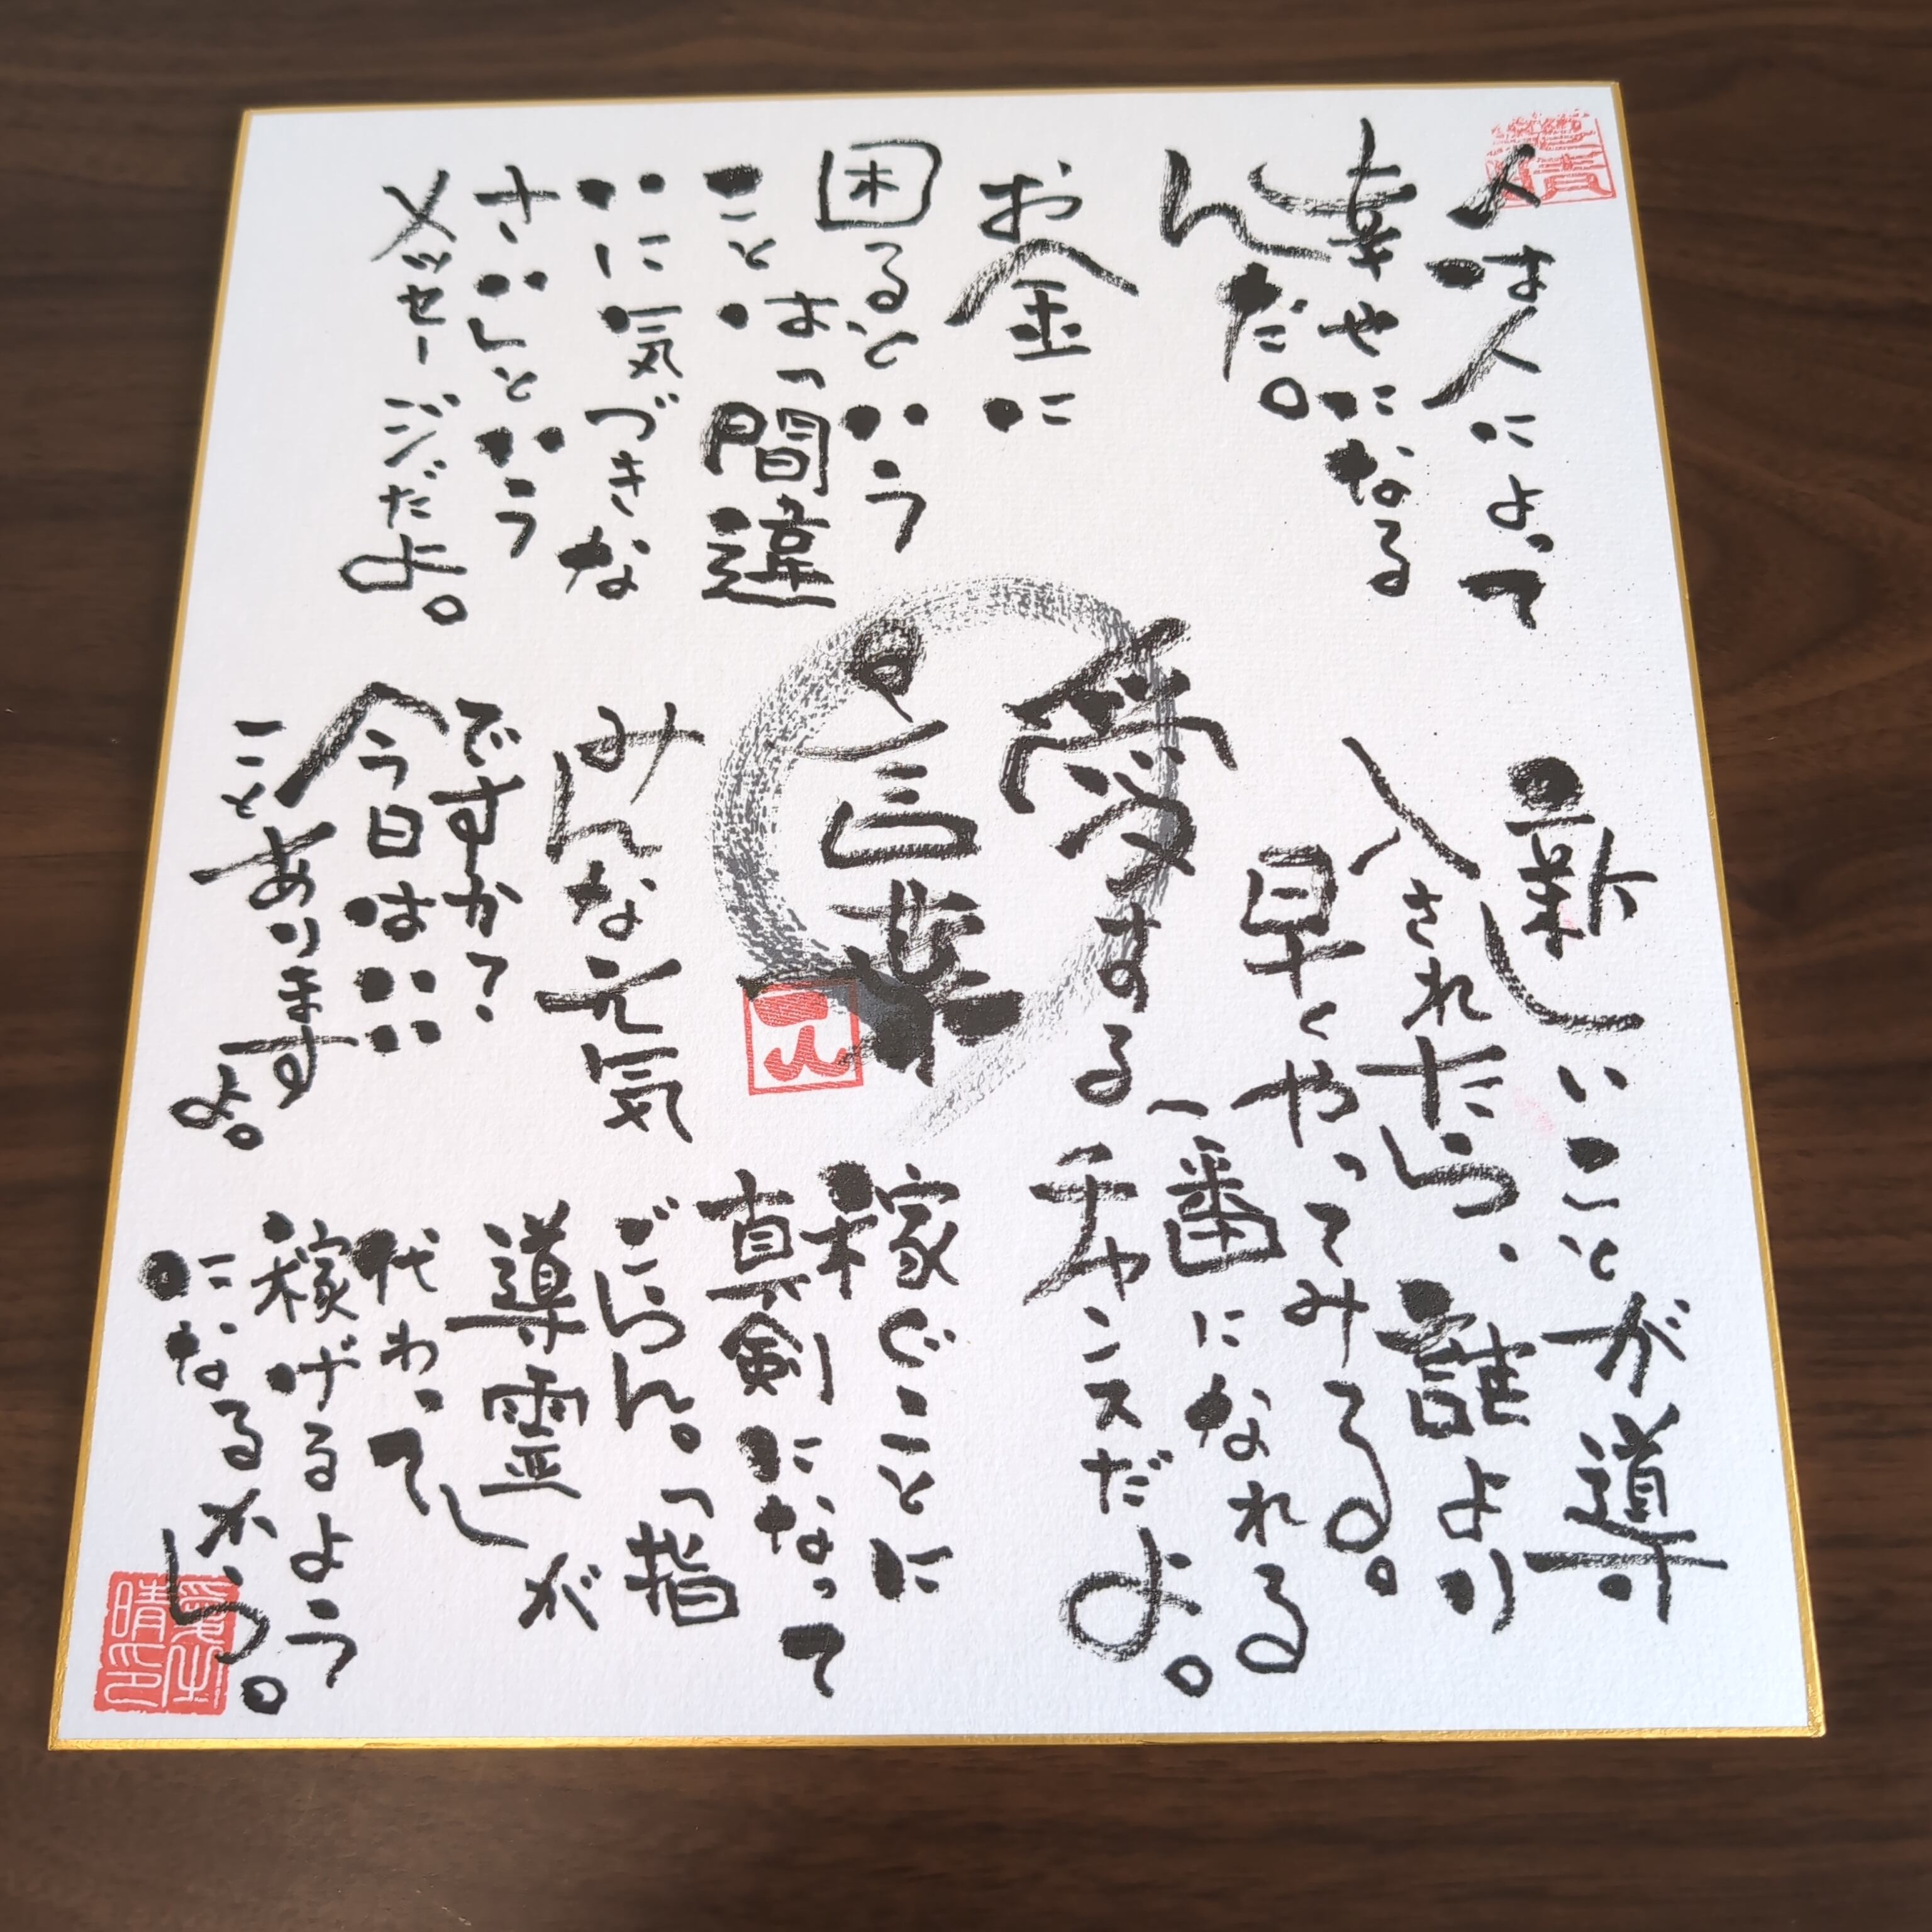 人は人によって
幸せになる
んだ。
お金に
困るという
ことは「間違
いに気づきな
さい」という
メッセージだよ。
新しいことが導
入されたら、誰より
早くやってみる。
一番になれる
チャンスだよ。
愛する
言葉
元
みんな元気
ですか?
今日はいい
ことあります
よ。
稼ぐことに
真剣になって
ごらん。「指
導霊」が
代わって
稼げるよう
になるから。